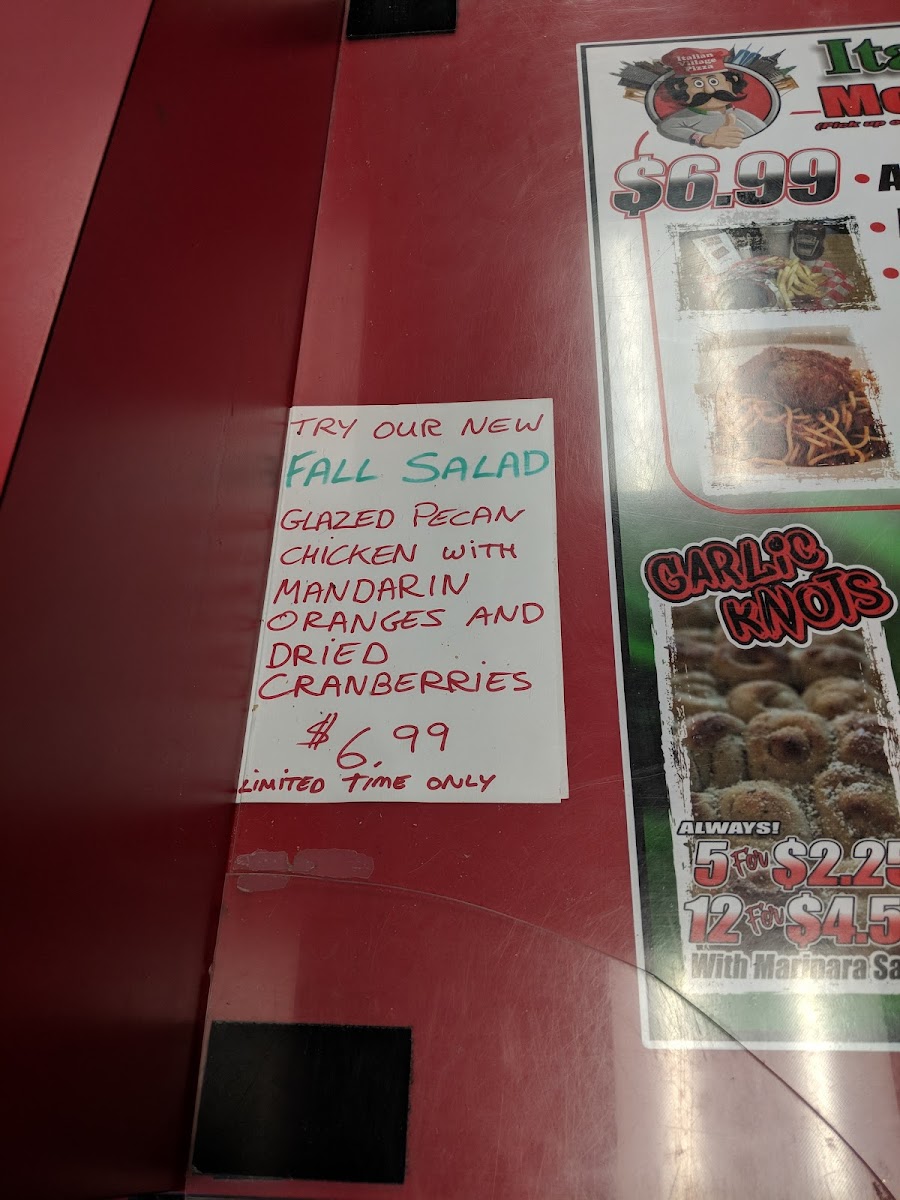 TRY OUR NEW
FALL SALAD
GLAZED PECAN
CHICKEN WITH
MANDARIN
ORANGES AND
DRIED
CRANBERRIES
$6.99
LIMITED TIME ONLY
Italian
Village
Pizza
Ita
Mo
(Pick up o
$6.99 • A
GARLIC
KNOTS
ALWAYS!
5 For $2.25
12 For $4.5
With Marinara Sa